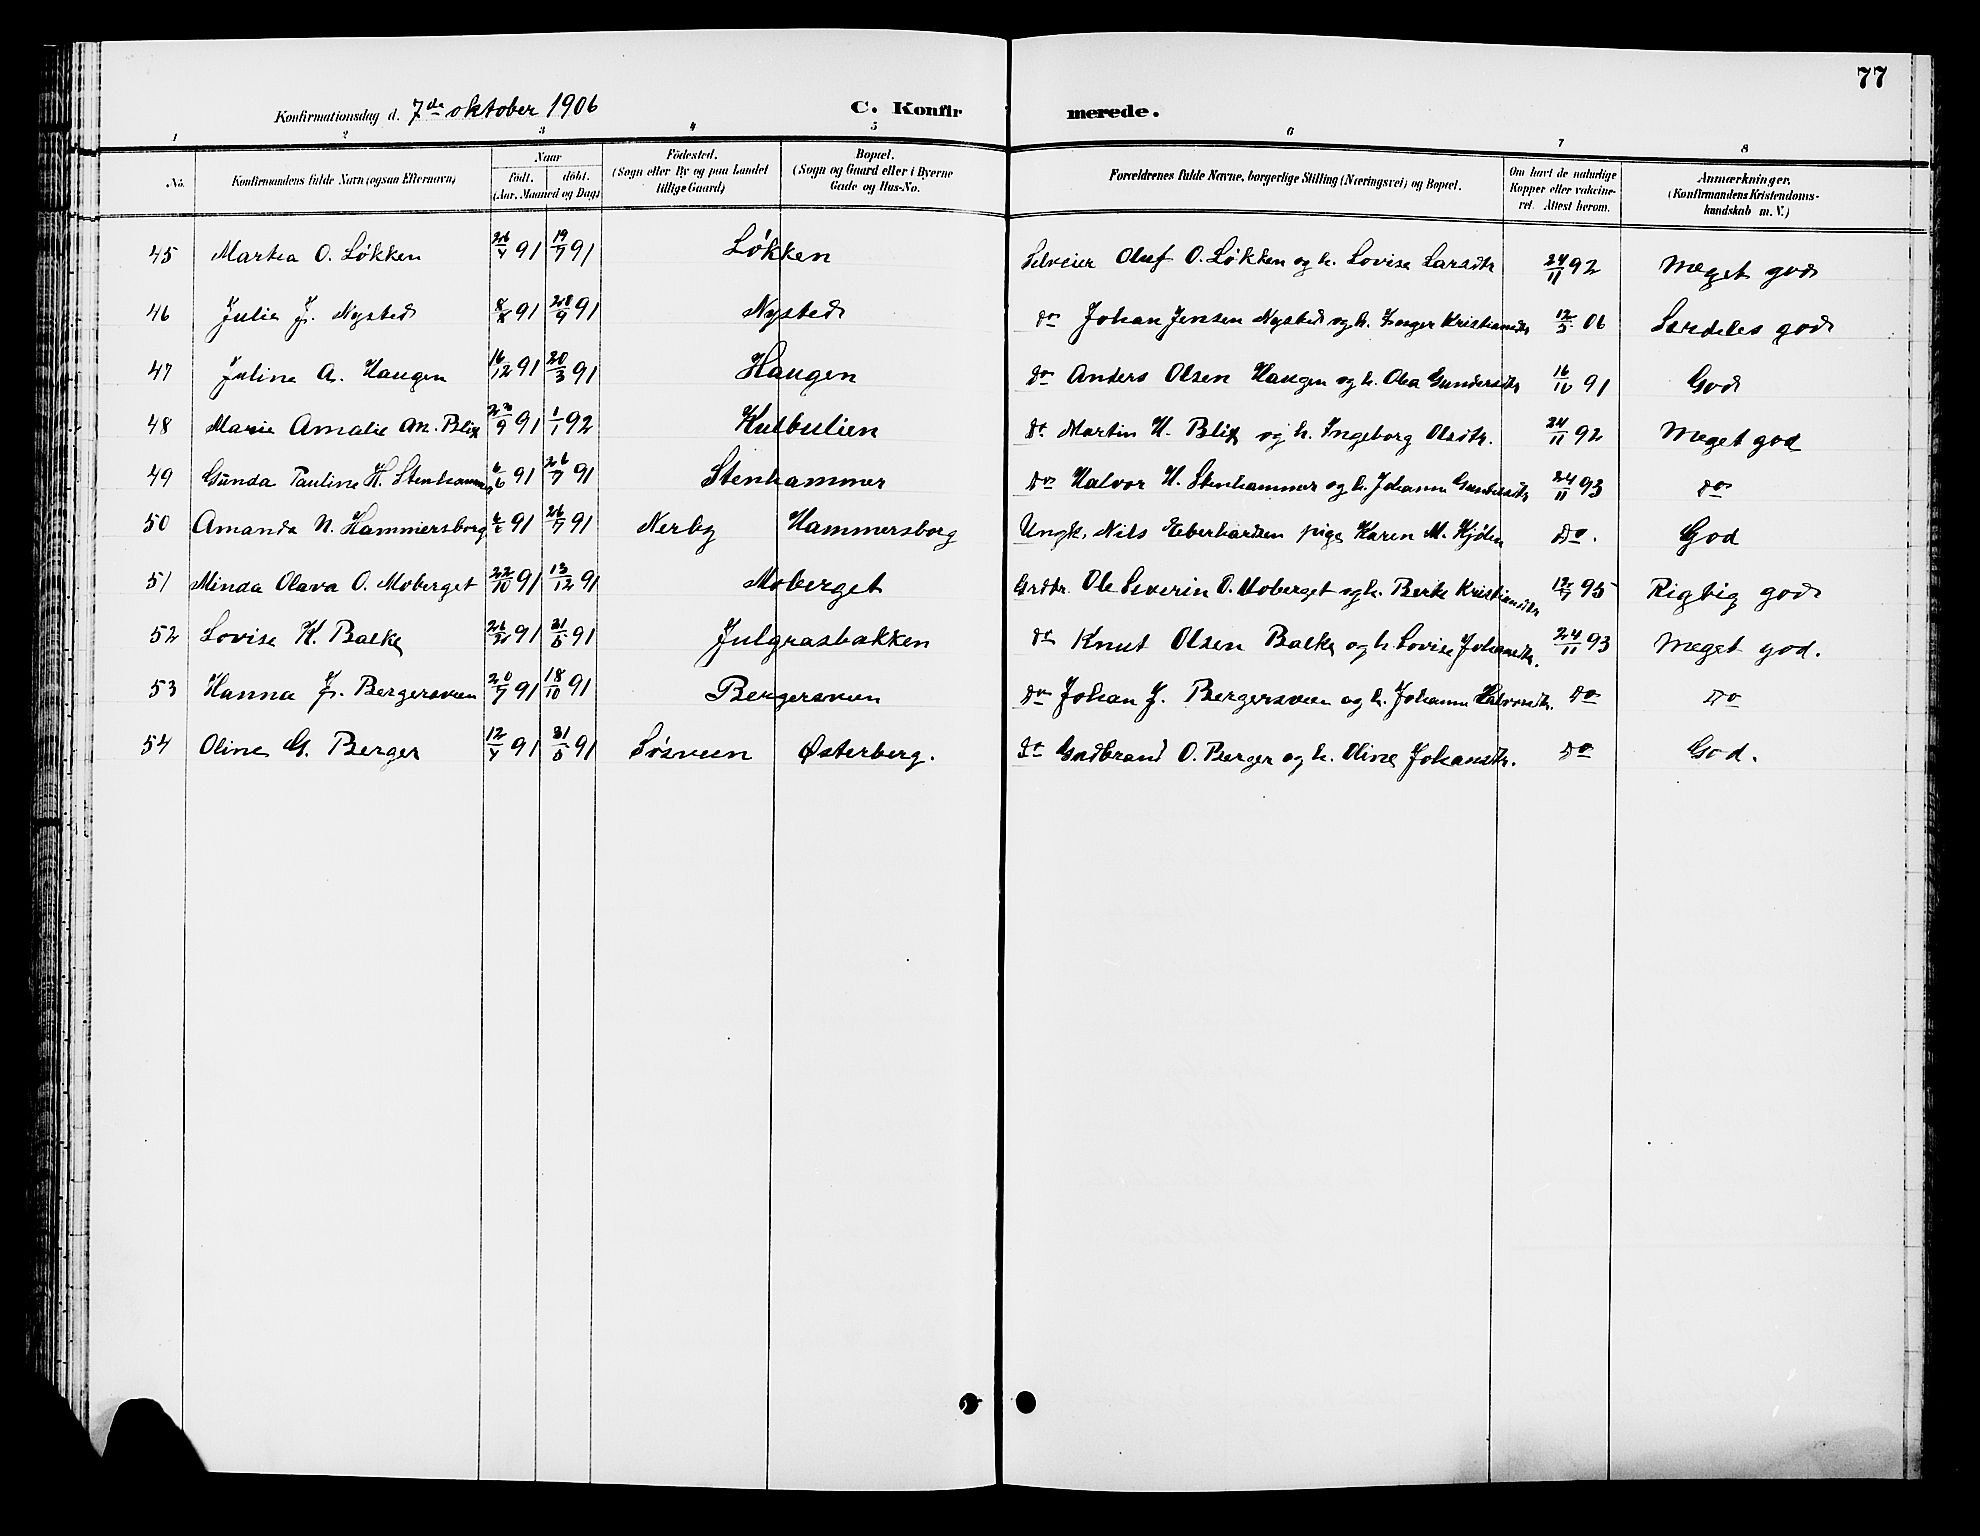 77
Konfirmationsdag d. 7de oktober 1906 C. Konfirmerede.
1 2 3 4 5 6 7 8
No. Konfirmandens fulde Navn (ogsaa Efternavn) Naar født. døbt. (Aar, Maaned og Dag) Fødested. (Sogn eller By og paa Landet tillige Gaard) Bopæl. (Sogn og Gaard eller i Byerne Gade og Hus-No. Forældrenes fulde Navne, borgerlige Stilling (Næringsvei) og Bopæl. Om havt de naturlige Kopper eller vakcineret. Attest herom. Anmærkninger. (Konfirmandens Kristendomskundskab m. V.)
45 Martea O. Løkken 26/4 91 19/7 91 Løkken Selveier Oluf O. Løkken og h. Lovise Larsdtr 24/11 92 Meget god
46 Julie J. Nysted 8/8 91 28/9 91 Nysted do Johan Jensen Nysted og h. Inger Kristiansdtr 12/5 06 Særdeles god
47 Juline A. Haugen 16/12 91 20/3 91 Haugen do Anders Olsen Haugen og h. Olea Gundersdtr 16/10 91 God
48 Marie Amalie M. Blix 23/9 91 1/1 92 Kulbulien do Martin H. Blix og h. Ingeborg Olsdtr. 24/11 92 Meget god
49 Gunda Pauline H. Stenhammer 6/6 91 26/7 91 Stenhammer do Halvor H. Stenhammer og h. Johanne Gundersdtr 24/11 93 do
50 Amanda N. Hammersborg 6/6 91 26/7 91 Nerby Hammersborg Ungk. Nils Eberhardsen pige Karen M. Kjølen do. God
51 Minda Olava O. Moberget 22/10 91 13/12 91 Moberget Grdbr. Ole Severin O. Moberget og h. Berte Kristiansdtr 12/7 95 Rigtig god
52 Lovise K. Balke 91 31/5 91 Julgrasbakken do Knut Olsen Balke og h. Lovise Johansdtr. 24/11 93 Meget god.
53 Hanna J. Bergersveen 20/7 91 18/10 91 Bergersveen do Johan J. Bergersveen og h. Johanne Halvorsdtr. do do
54 Oline G. Berger 12/4 91 31/5 91 Søsveen Østerberg. do Gudbrand O. Berger og h. Oline Johansdtr. do God.